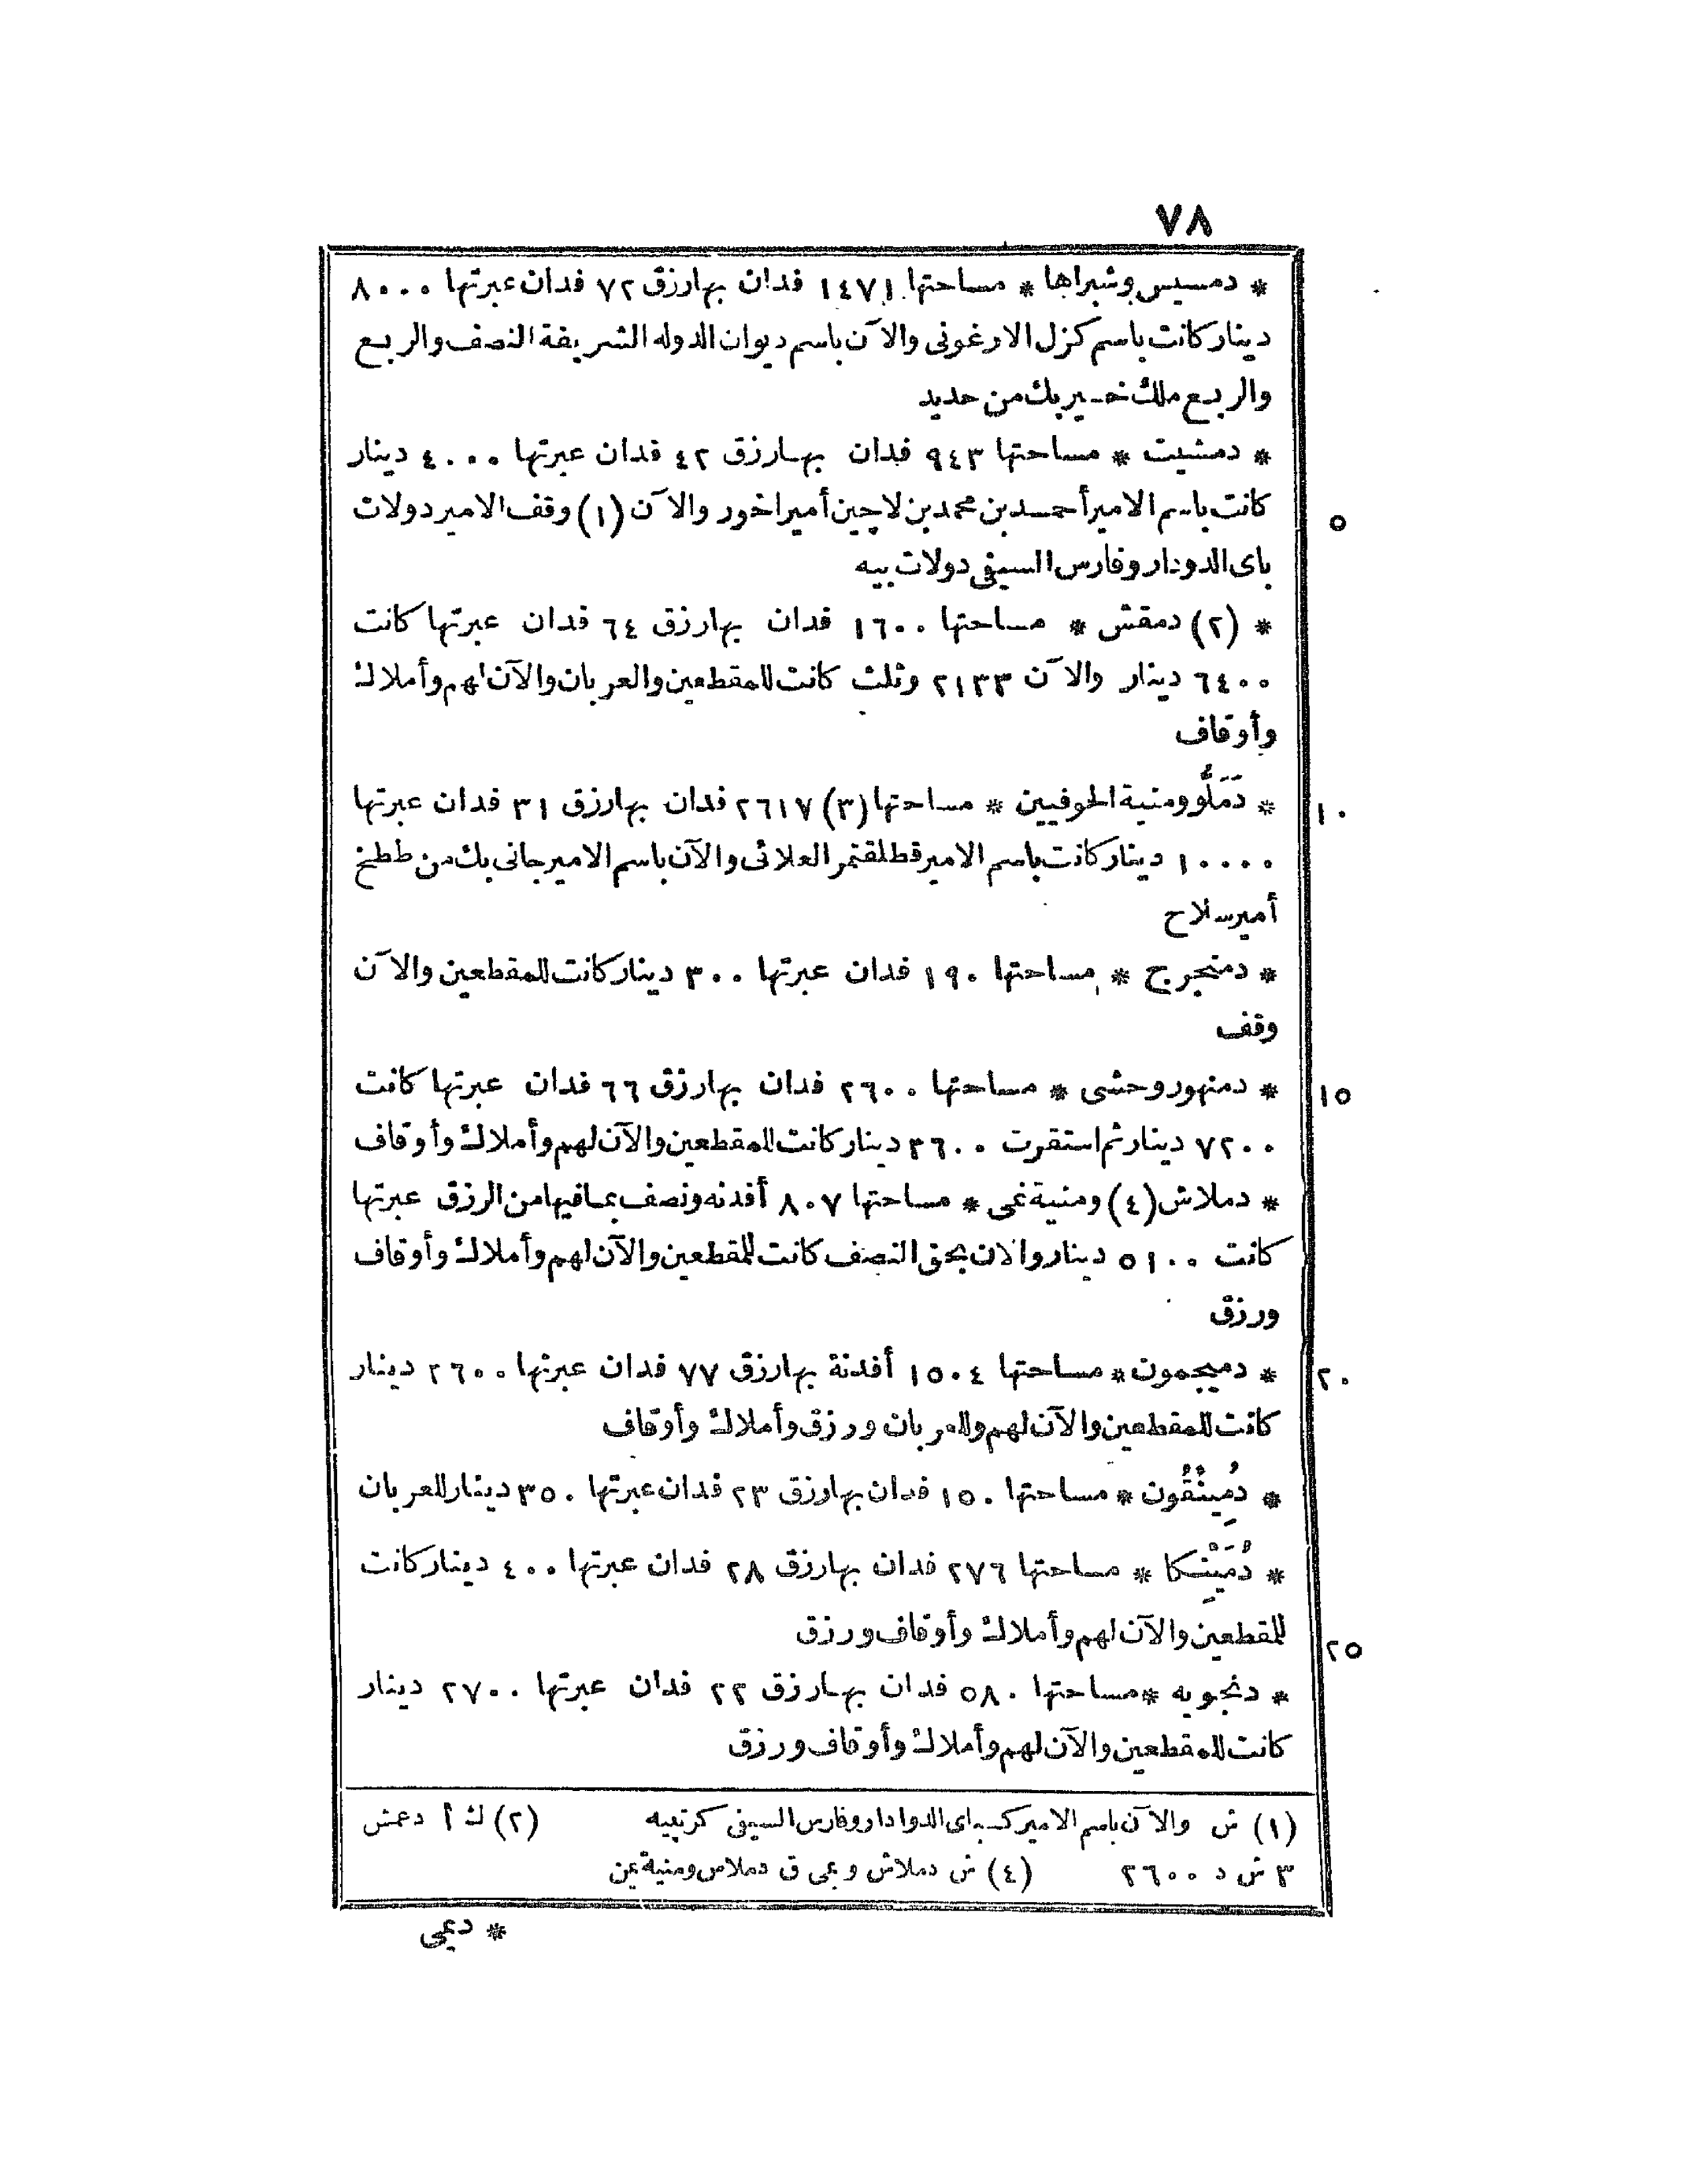 ٧٨
* دمسيس وشبراها * مساحتها ١٤٧١ فدان بها رزق ٧٢ فدان عبرتها ٨٠٠٠
دينار كانت باسم كزل الارغونى والآن باسم ديوان الدوله الشريفة النصف والربع
والربع ملك خير بك من حديد
* دمشيت * مساحتها ٩٤٣ فدان بها رزق ٤٢ فدان عبرتها ٤٠٠٠ دينار
كانت باسم الامير أحمد بن محمد بن لاچين أمير اخور والآن (١) وقف الامير دولات ٥
باى الدودار وفارس السيفى دولات بيه
* (٢) دمقش * مساحتها ١٦٠٠ فدان بها رزق ٦٤ فدان عبرتها كانت
٦٤٠٠ دينار والآن ٢١٣٣ وثلث كانت للمقطعين والعربان والآن لهم وأملاك
وأوقاف
* دَمَلُّو ومنية الحوفيين * مساحتها (٣) ٢٦١٧ فدان بها رزق ٣١ فدان عبرتها ١٠
١٠٠٠٠ دينار كانت باسم الامير قطلقتمر العلائى والآن باسم الامير جانى بك من ططخ
أمير سلاح
* دمنجرج * مساحتها ١٩٠ فدان عبرتها ٣٠٠ دينار كانت للمقطعين والآن
وقف
* دمنهور وحشى * مساحتها ٢٦٠٠ فدان بها رزق ٦٦ فدان عبرتها كانت ١٥
٧٢٠٠ دينار ثم استقرت ٣٦٠٠ دينار كانت للمقطعين والآن لهم وأملاك وأوقاف
* دملاش (٤) ومنية غمى * مساحتها ٨٠٧ أفدنه ونصف بما فيها من الرزق عبرتها
كانت ٥١٠٠ دينار والان بحق النصف كانت للمقطعين والآن لهم وأملاك وأوقاف
ورزق
* دميجمون * مساحتها ١٥٠٤ أفدنة بها رزق ٧٧ فدان عبرتها ٢٦٠٠ دينار ٢٠
كانت للمقطعين والآن لهم وللعربان ورزق وأملاك وأوقاف
* دُمِينْقُون * مساحتها ١٥٠ فدان بها رزق ٢٣ فدان عبرتها ٣٥٠ دينار للعربان
* دُمَيْنِكا * مساحتها ٢٧٦ فدان بها رزق ٢٨ فدان عبرتها ٤٠٠ دينار كانت
للمقطعين والآن لهم وأملاك وأوقاف ورزق ٢٥
* دنجويه * مساحتها ٥٨٠ فدان بها رزق ٢٢ فدان عبرتها ٢٧٠٠ دينار
كانت للمقطعين والآن لهم وأملاك وأوقاف ورزق
(١) ش والآن باسم الامير كسباى الدوادار وفارس السيفى كرتبيه (٢) ك أ دعمش
٣ ش د ٢٦٠٠ (٤) ش دملاش و ق دملاس ومنية
* دعمى